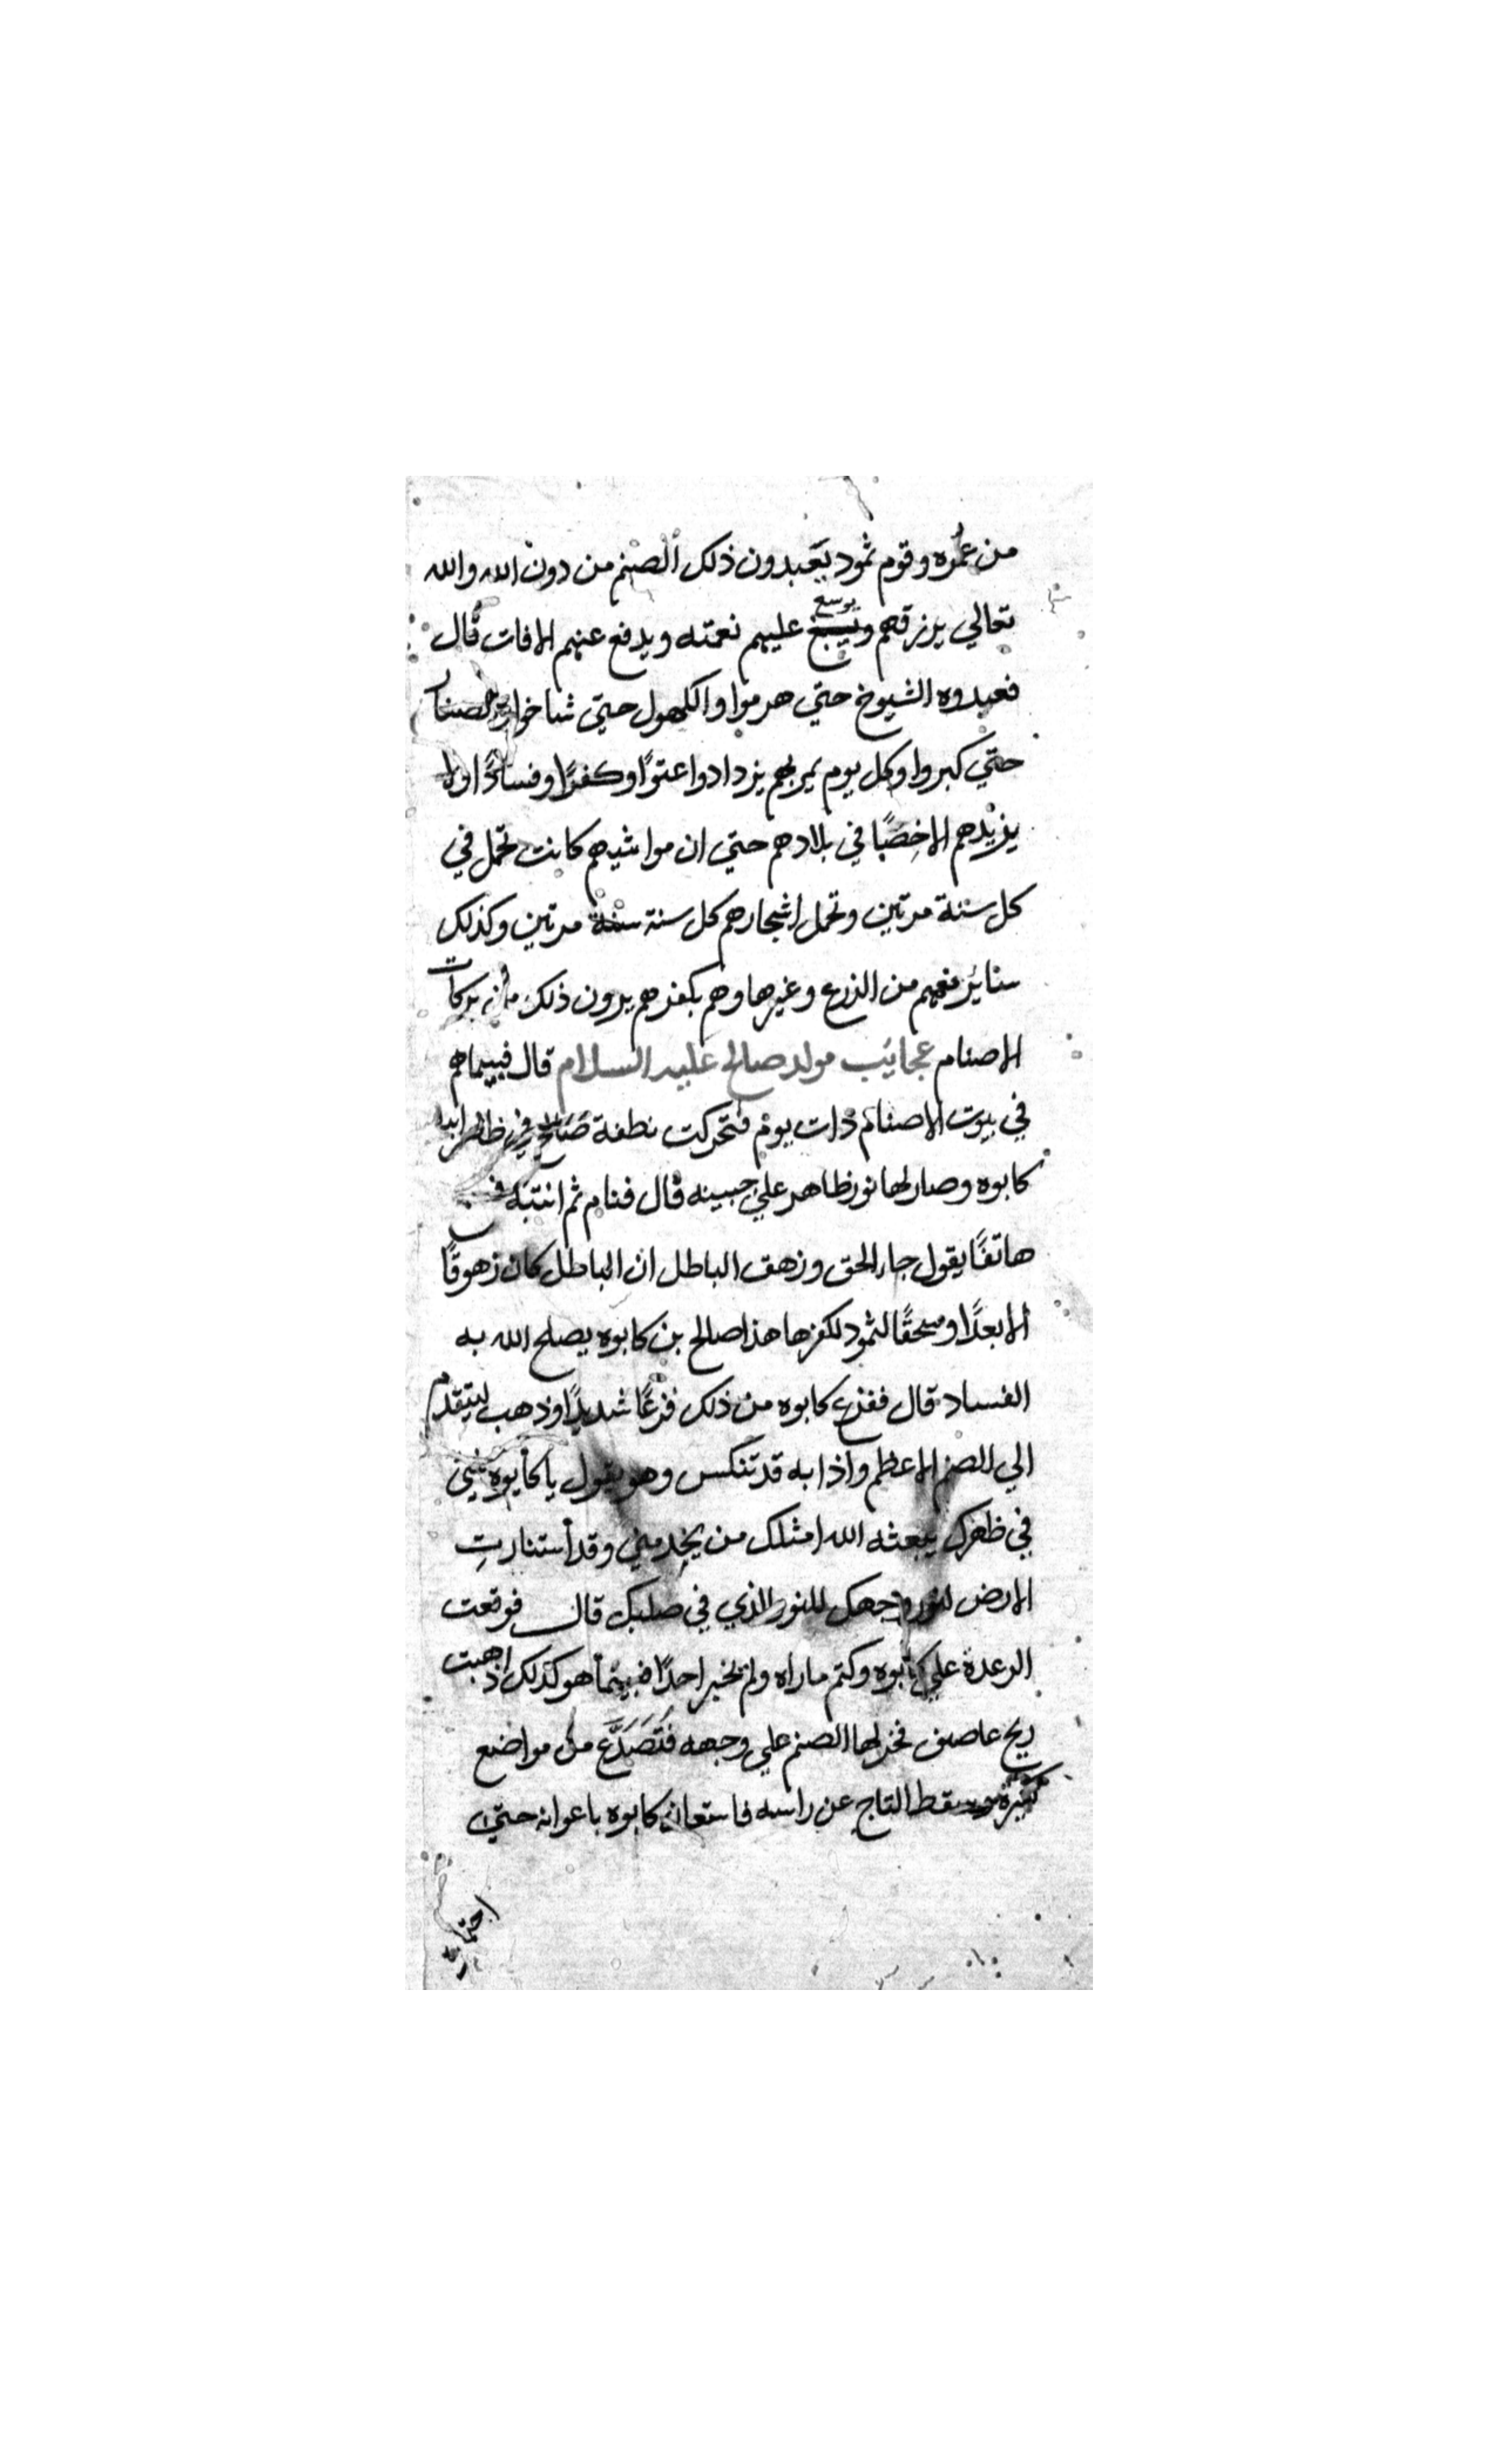 من عمره وقوم ثمود يعبدون ذلك الصنم من دون الله والله
تعالي يرزقهم ويسبغ يوسع عليهم نعمته ويدفع عنهم الافات قال
فعبدوه الشيوخ حتي هرموا والكهول حتي شاخوا
حتي كبروا وكل يوم يمر بهم يزدادوا عتوًا وكفرًا وفسادًا ولا
يزيدهم الا خِصَبًا في بلادهم حتي ان مواشيهم كانت تحمل في
كل سنة مرتين وتحمل اشجارهم كل سنة سنة مرتين وكذلك
سائر نعمهم من الزرع وغيرها وهم بكفرهم يرون ذلك من بركات
الاصنام عجايَب مولد صالح عليه السلام قال فبينماهم
في بيوت الاصنام ذات يوم فتحركت نطفة صَالح في ظهر ابيه
كابوه وصار لها نور ظاهر علي جبينه قال فنام ثم انتبه
هاتفًا يقول جاء الحق وزهق الباطل ان الباطل كان زهوقًا
الا بعدًا وسحقًا لثمود لكفرها هذا صالح بن كابوه يصلح الله به
الفساد قال ففزع كابوه من ذلك فزعًا شديدًا وذهب ليتقدم
الي الصنم الاعظم واذا به قد تنكس وهو يقول يا كابوه
في ظهرك يبعثه الله امثلك من يخدمني وقد أستنارتِ
الارض لنور وجهك للنور الذي في صلبك قال فوقعت
الرعدة علي كابوه وكتم ماراه ولم يخبر احدًا فبينما هو كذلك اذ هبت
ريح عاصف فخر لها الصنم علي وجهه فَتَصَدَّعَ من مواضع
كثيرة وسقط التاج عن راسه فاستعان كابوه باعوانه حتي